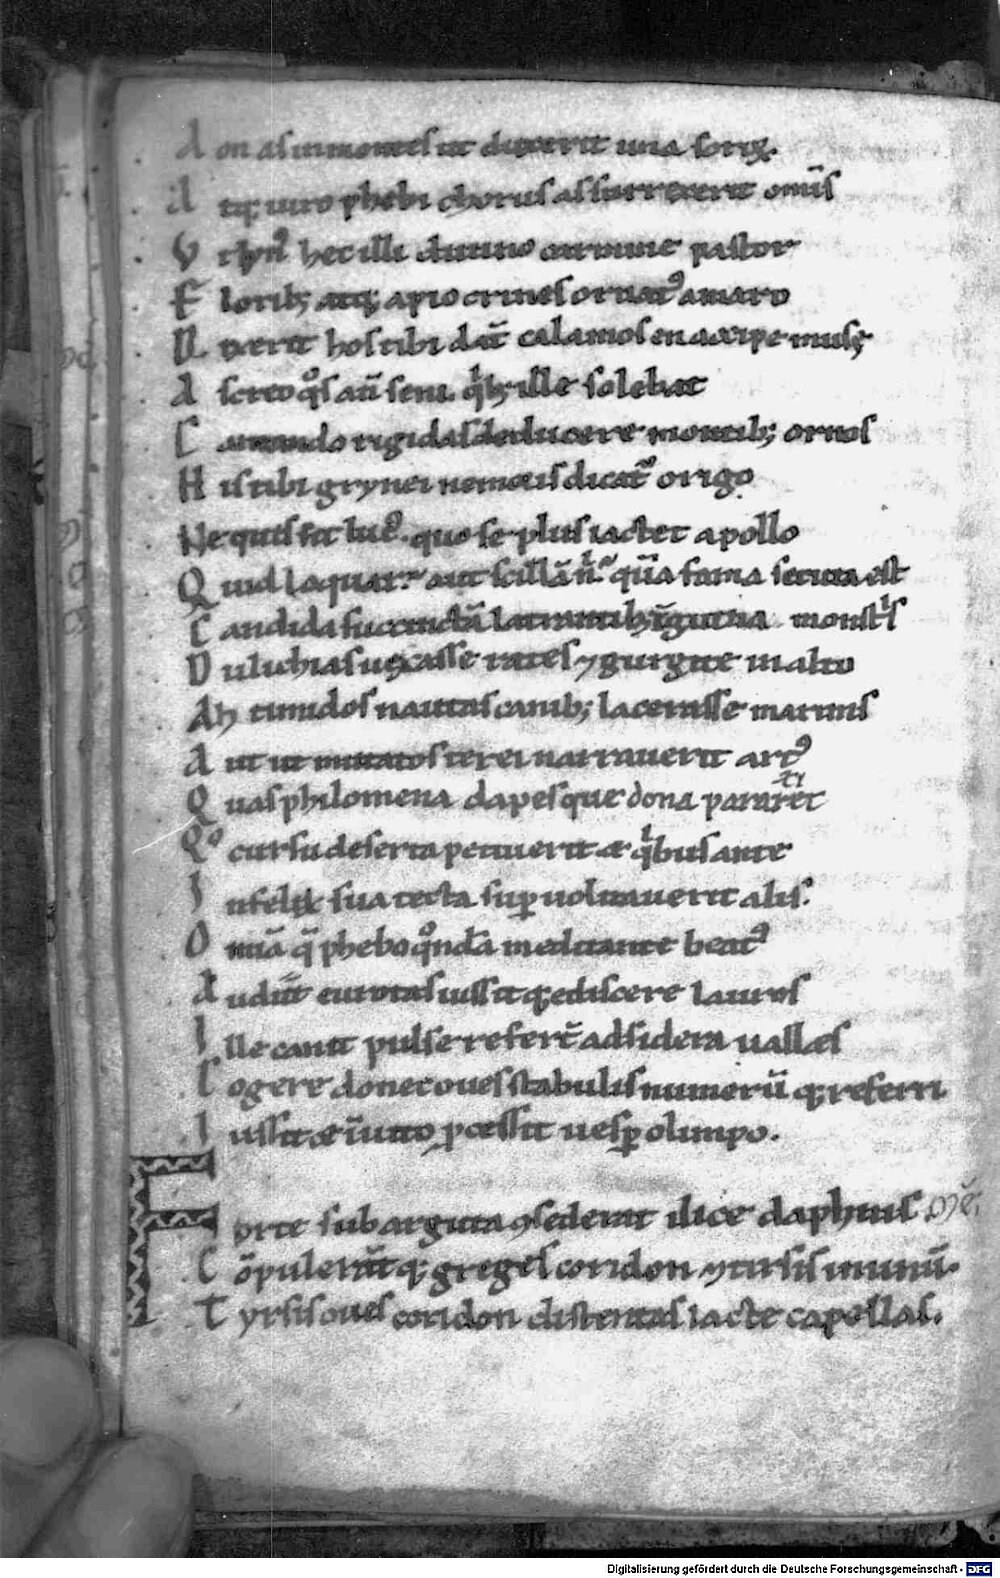 A on as in montes ut duxerit una soroꝝ.
A tq; uiro phebi chorus assurrexerit omĩs
V t lynꝰ hec illi diuino carmine pastor
F lorib; atq; apio crines ornatꝰ amaro
D ixerit hos tibi dat̃ calamos en accipe musę
A screo qͦs an̄ seni. qͥb; ille solebat
C antando rigidas deducere montib; ornos
H is tibi grynei nemoris dicat᷑ origo
Ne quis sit lucꝰ. quo se plus iactet apollo
Q uid loquar? aut scillā nͥ. quā fama secuta est
C andida succinctā latrantib; īguina monstͥs
D ulichias uexasse rates ⁊ gurgite in alto
Ah timidos nautas canib; lacerasse marinis
A ut ut mutatos terei narrauerit artꝰ
Q uas philomena dapes que dona pararet
Qͦ cursu deserta petiuerit & qͥbus ante
I nfelix sua tecta suꝑ uolitauerit alis.
O mīa q̄ phebo qͦndā meditante beatꝰ
A udiit eurotas iussitq; ediscere lauros
I lle canit pulse refer̄t ad sidera ualles
C ogere donec oues stabulis numerū q; referri
I ussit & īuito ꝓcessit uesꝑ olimpo.
F orte sub arguta ꝯsederat ilice daphnis Me᷑;
C ōpulerāt q; greges coridon ⁊ tirsis in unū.
T yrsis oues coridon distentas lacte capellas.
Digitalisierung gefördert durch die Deutsche Forschungsgemeinschaft - DFG